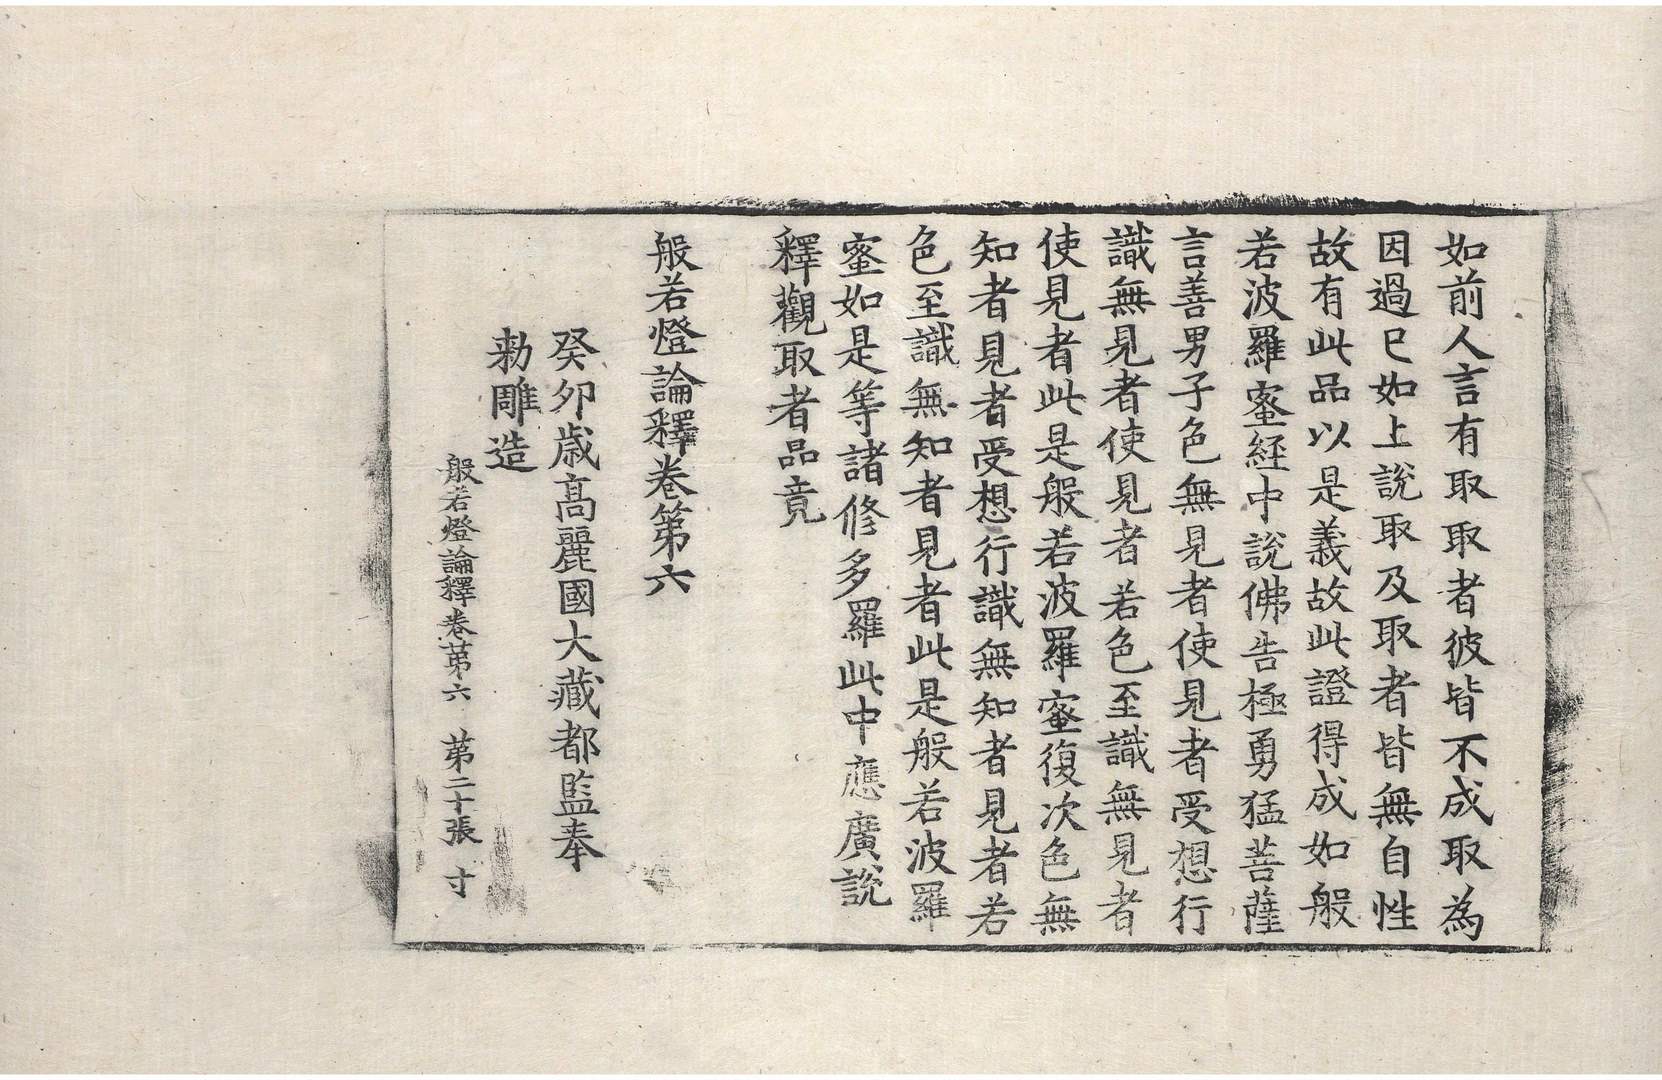 如前人言有取取者彼皆不成取為
因過已如上說取及取者皆無自性
故有此品以是義故此證得成如般
若波羅蜜經中說佛告極勇猛菩薩
言善男子色無見者使見者受想行
識無見者使見者若色至識無見者
使見者此是般若波羅蜜復次色無
知者見者受想行識無知者見者若
色至識無知者見者此是般若波羅
蜜如是等諸修多羅此中應廣說
釋觀取者品竟
般若燈論釋卷第六
癸卯歲高麗國大藏都監奉
勑雕造
般若燈論釋卷苐六 苐二十張 寸